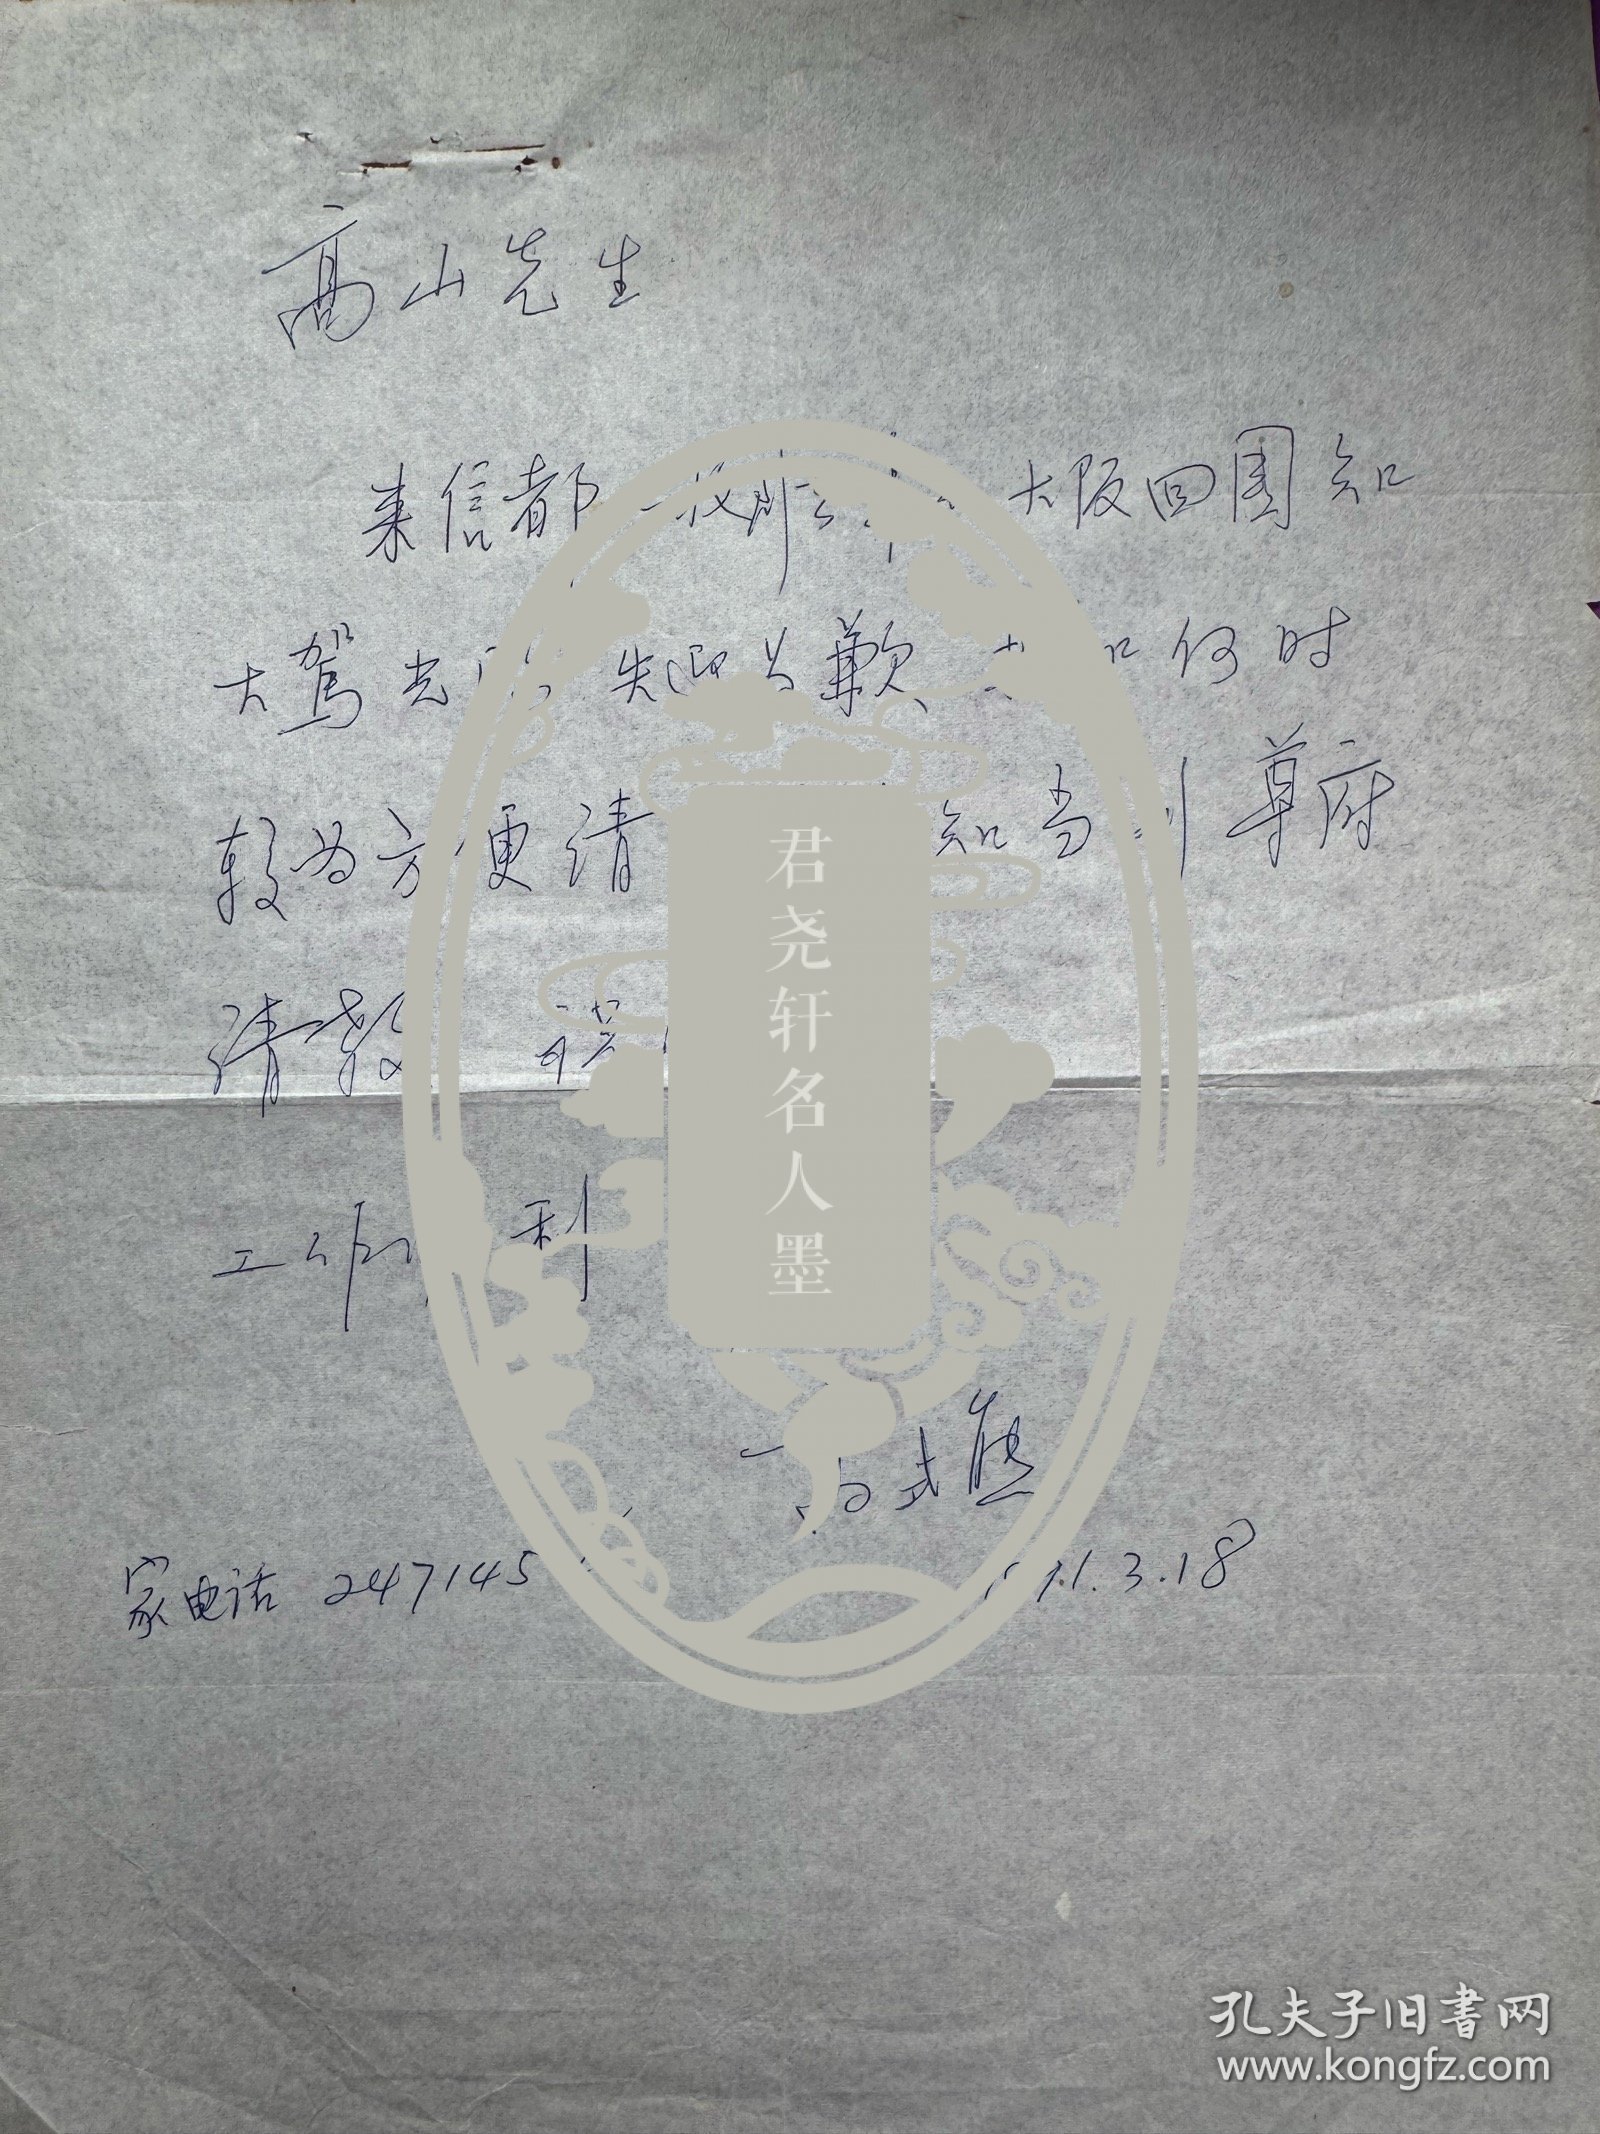 高山先生
来信都 我刚 大阪回国知
大驾光 失迎为歉 何时
较为方便请 知当到尊府
请教
工作 利
高式熊
家电话 247145 91.3.18
君尧轩名人墨
孔夫子旧书网
www.kongfz.com